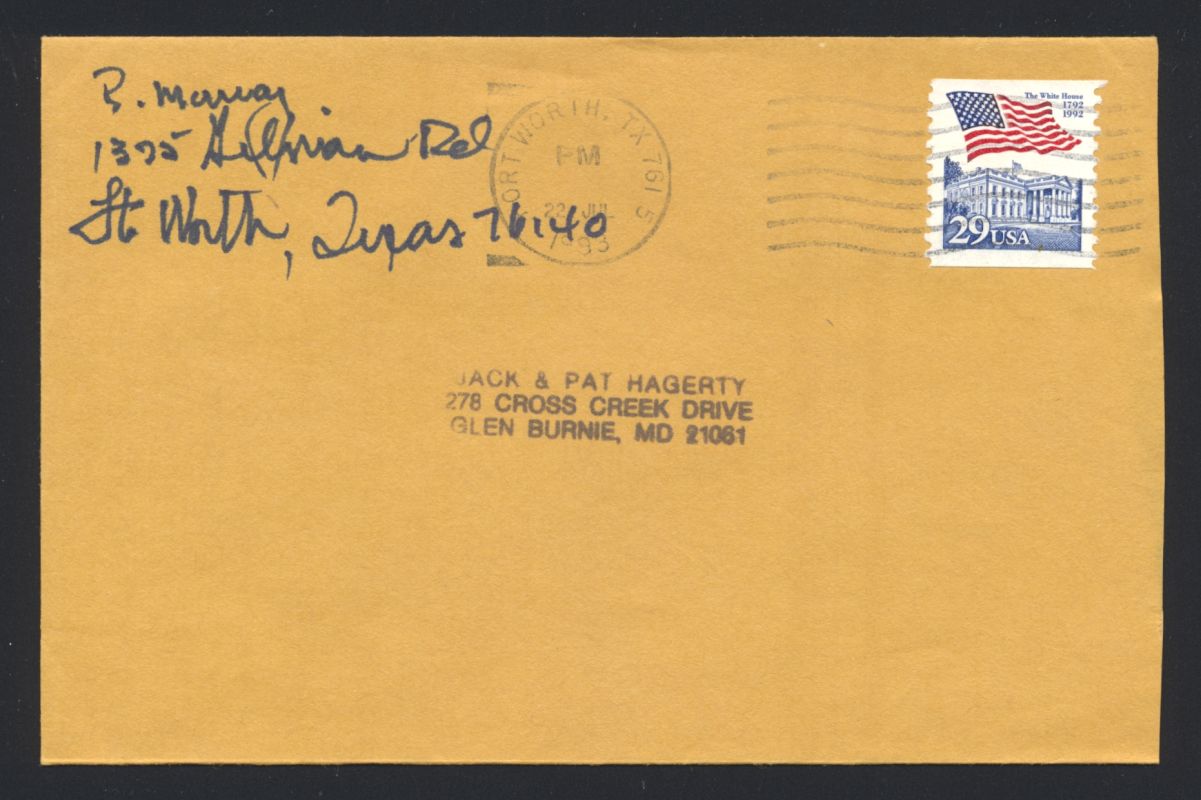 B. Murray
1375 Rd
Ft Worth, Texas 76140
FORT WORTH, TX 761 5
PM
JUL
1993
The White House
1792
1992
29 USA
JACK & PAT HAGERTY
278 CROSS CREEK DRIVE
GLEN BURNIE, MD 21061